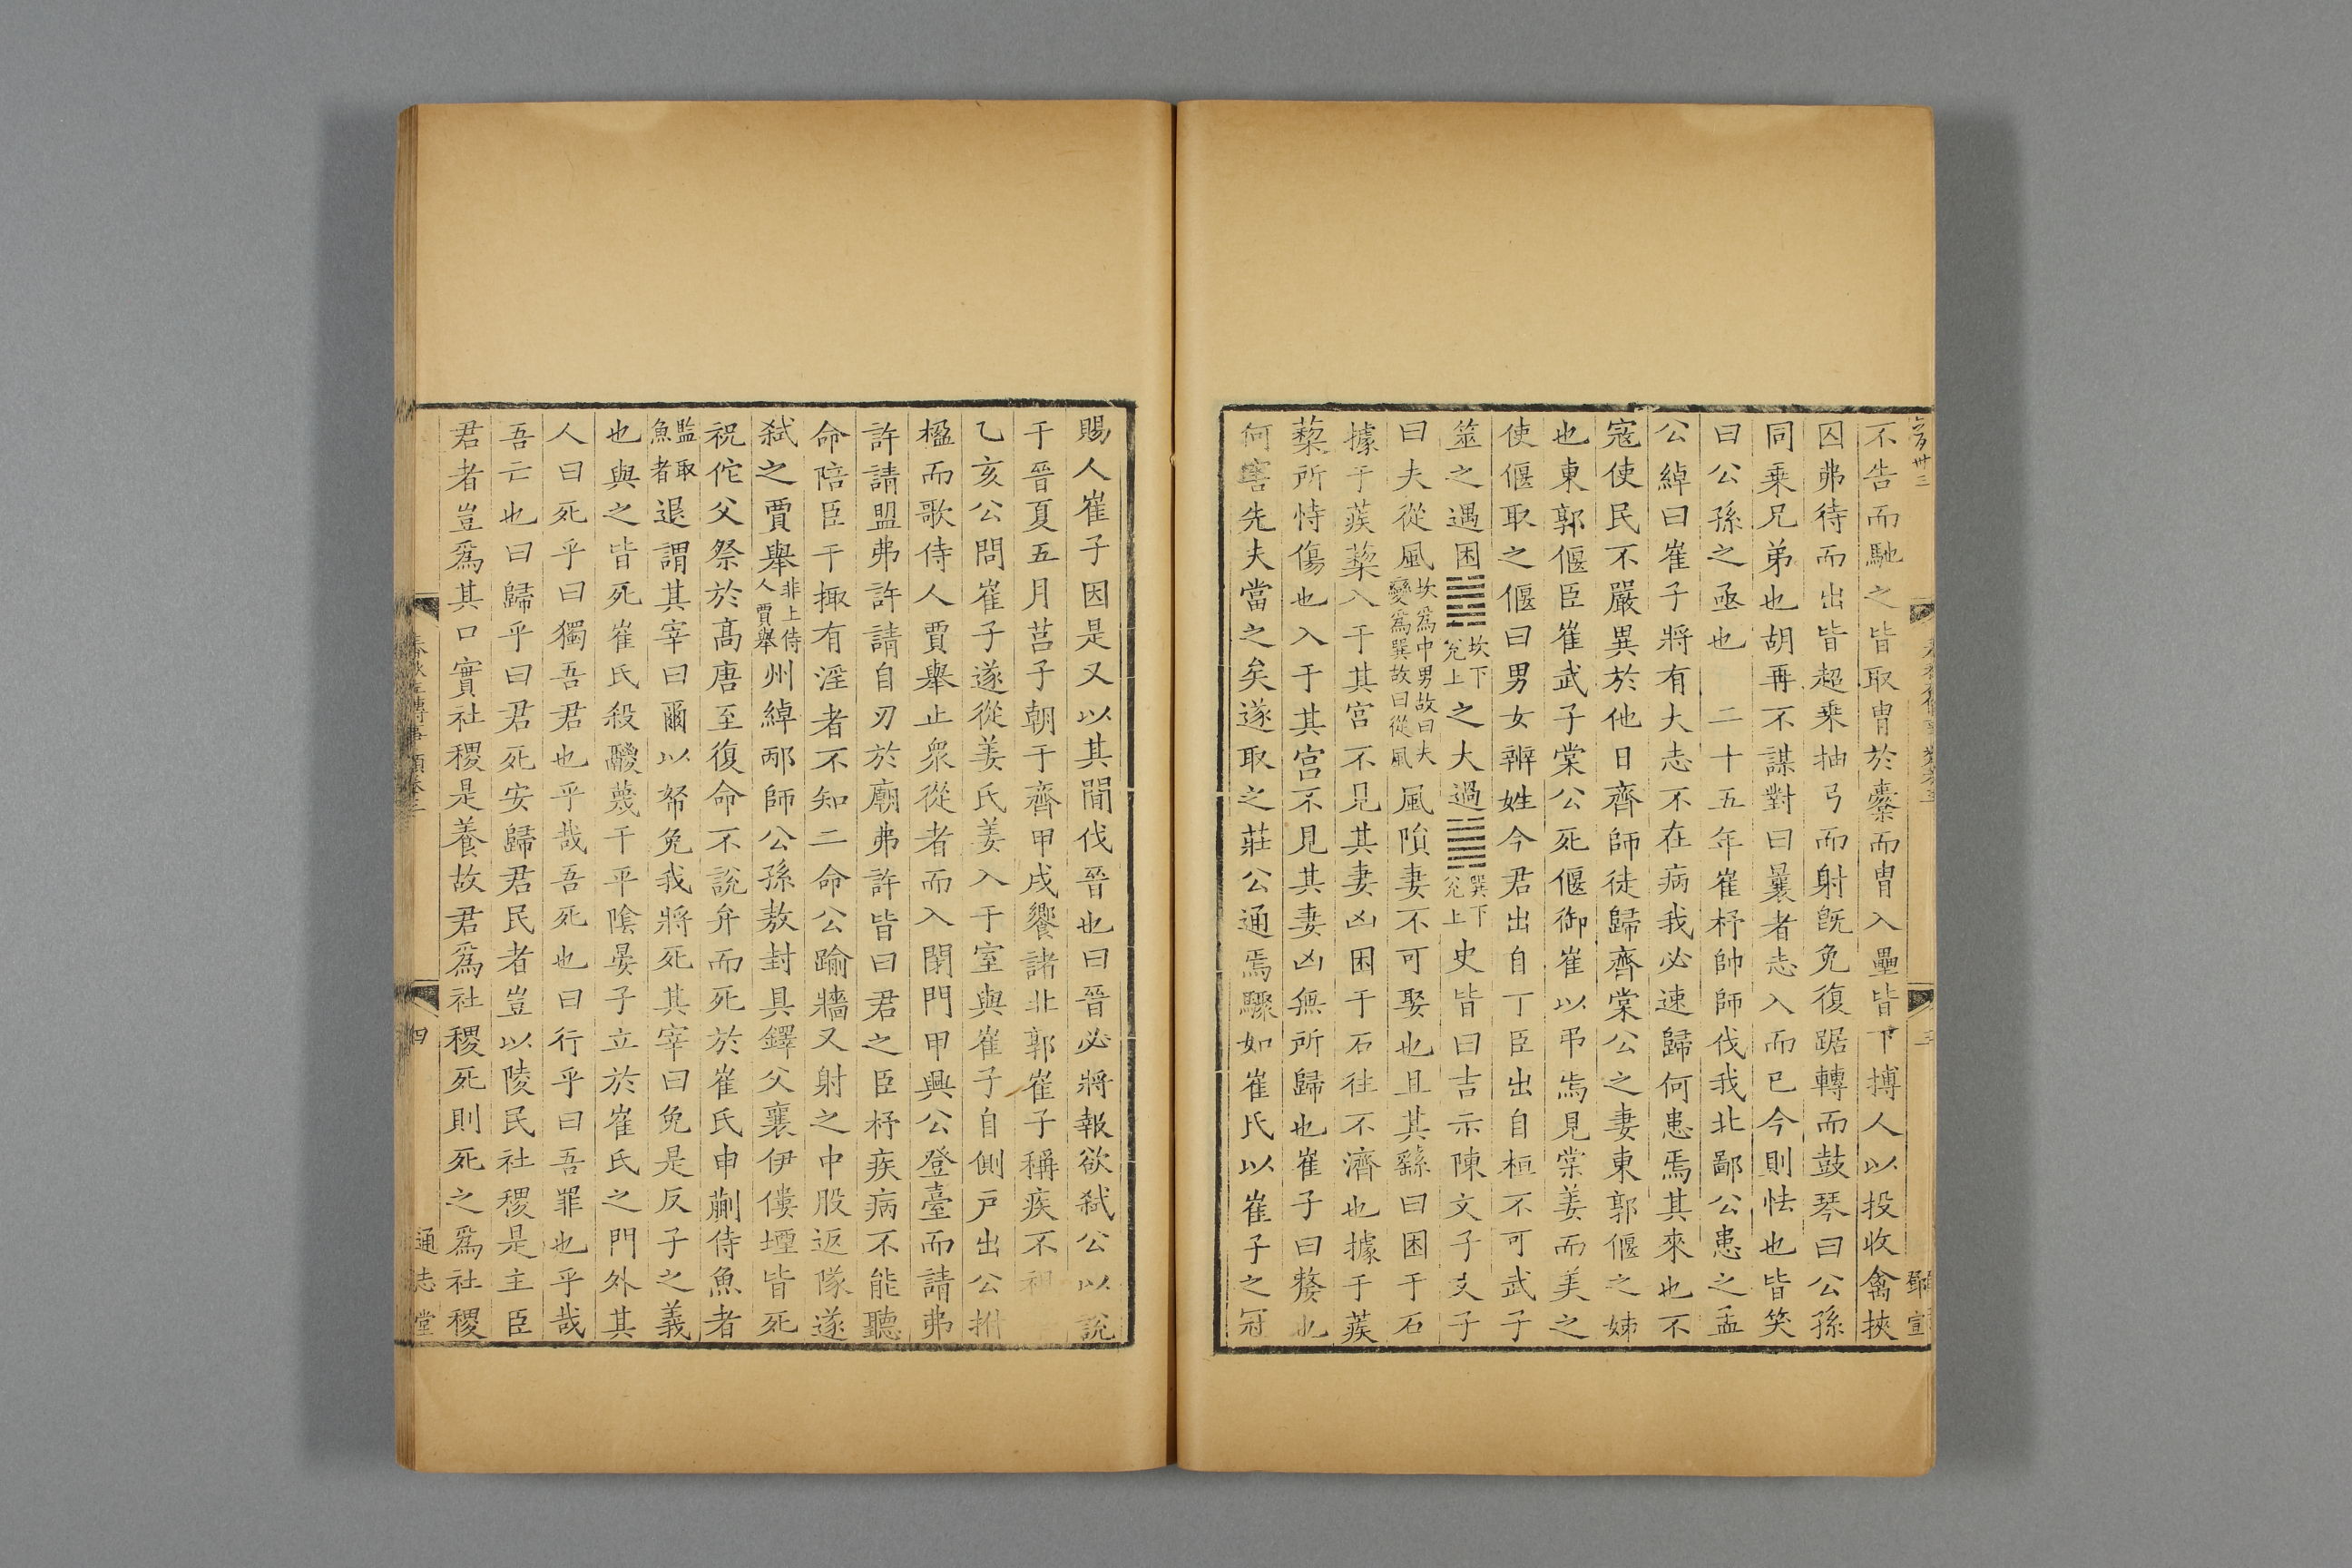 不告而馳之皆取胄於櫜而胄入壘皆下搏人以投收禽挾
囚弗待而出皆超乗抽弓而射旣免復踞轉而鼓琴曰公孫
同乗兄弟也胡再不謀對曰曩者志入而已今則怯也皆笑
曰公孫之亟也 二十五年崔杼帥師伐我北鄙公患之孟
公綽曰崔子將有大志不在病我必速歸何患焉其來也不
寇使民不嚴異於他日齊師徒歸齊棠公之妻東郭偃之姊
也東郭偃臣崔武子棠公死偃御崔以弔焉見棠姜而美之
使偃取之偃曰男女辨姓今君出自丁臣出自桓不可武子
筮之遇困䷮坎下兌上之大過䷛巽下兌上史皆曰吉示陳文子文子
曰夫從風坎爲中男故曰夫變爲巽故曰從風風隕妻不可娶也且其繇曰困于石
據于蒺蔾入于其宮不見其妻凶困于石往不濟也據于蒺
蔾所恃傷也入于其宮不見其妻凶無所歸也崔子曰嫠也
何害先夫當之矣遂取之莊公通焉驟如崔氏以崔子之冠
三
鄧宣
賜人崔子因是又以其間伐晉也曰晉必將報欲弑公以說
于晉夏五月莒子朝于齊甲戌饗諸北郭崔子稱疾不視
乙亥公問崔子遂從姜氏姜入于室與崔子自側戸出公拊
楹而歌侍人賈舉止衆從者而入閉門甲興公登臺而請弗
許請盟弗許請自刃於廟弗許皆曰君之臣杼疾病不能聽
命陪臣干掫有淫者不知二命公踰牆又射之中股返隊遂
弑之賈舉非上侍人賈舉州綽邴師公孫敖封具鐸父襄伊僂堙皆死
祝佗父祭於髙唐至復命不說弁而死於崔氏申蒯侍魚者
監取魚者退謂其宰曰爾以帑免我將死其宰曰免是反子之義
也與之皆死崔氏殺鬷蔑于平陰晏子立於崔氏之門外其
人曰死乎曰獨吾君也乎哉吾死也曰行乎曰吾罪也乎哉
吾亡也曰歸乎曰君死安歸君民者豈以陵民社稷是主臣
君者豈爲其口實社稷是養故君爲社稷死則死之爲社稷
春秋左傳事類卷三
四
通志堂